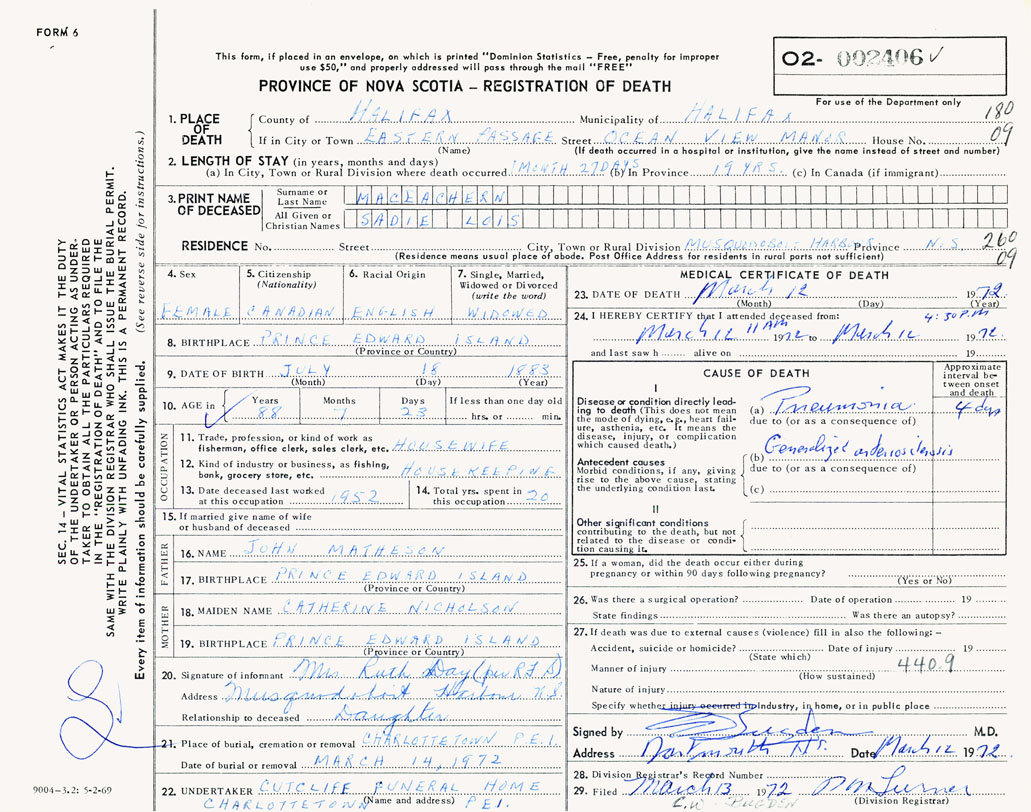 FORM 6
This form, if placed in an envelope, on which is printed "Dominion Statistics – Free, penalty for improper
use $50," and properly addressed will pass through the mail "FREE"
O2- 002406 ✓
For use of the Department only
PROVINCE OF NOVA SCOTIA – REGISTRATION OF DEATH
1. PLACE OF DEATH
County of HALIFAX Municipality of HALIFAX 180
If in City or Town EASTERN PASSAGE Street OCEAN VIEW MANOR House No. 09
(Name) (If death occurred in a hospital or institution, give the name instead of street and number)
2. LENGTH OF STAY (in years, months and days)
(a) In City, Town or Rural Division where death occurred 1 MONTH 27 DAYS (b) In Province 19 YRS. (c) In Canada (if immigrant)
3. PRINT NAME OF DECEASED
Surname or Last Name MACEACHERN
All Given or Christian Names SADIE LOIS
RESIDENCE No. Street City, Town or Rural Division MUSQUODOBOIT HARBOUR Province N.S. 260
(Residence means usual place of abode. Post Office Address for residents in rural parts not sufficient) 09
4. Sex
FEMALE
5. Citizenship
(Nationality)
CANADIAN
6. Racial Origin
ENGLISH
7. Single, Married,
Widowed or Divorced
(write the word)
WIDOWED
8. BIRTHPLACE PRINCE EDWARD ISLAND
(Province or Country)
9. DATE OF BIRTH JULY 18 1883
(Month) (Day) (Year)
10. AGE in Years Months Days If less than one day old
88 7 23 hrs. or min.
OCCUPATION
11. Trade, profession, or kind of work as
fisherman, office clerk, sales clerk, etc. HOUSEWIFE
12. Kind of industry or business, as fishing,
bank, grocery store, etc. HOUSEKEEPING
13. Date deceased last worked
at this occupation 1952
14. Total yrs. spent in
this occupation 20
15. If married give name of wife
or husband of deceased
FATHER
16. NAME JOHN MATHESON
17. BIRTHPLACE PRINCE EDWARD ISLAND
(Province or Country)
MOTHER
18. MAIDEN NAME CATHERINE NICHOLSON
19. BIRTHPLACE PRINCE EDWARD ISLAND
(Province or Country)
20. Signature of informant Mrs Ruth Day (per R F D)
Address Musquodoboit Harbour N.S.
Relationship to deceased Daughter
21. Place of burial, cremation or removal CHARLOTTETOWN P.E.I.
Date of burial or removal MARCH 14, 1972
22. UNDERTAKER CUTCLIFF FUNERAL HOME
CHARLOTTETOWN (Name and address) P.E.I.
MEDICAL CERTIFICATE OF DEATH
23. DATE OF DEATH March 12 1972
(Month) (Day) (Year)
24. I HEREBY CERTIFY that I attended deceased from: 4:30 P.M
March 12 11 AM 1972 to March 12 1972
and last saw h alive on 19
CAUSE OF DEATH
Approximate
interval be-
tween onset
and death
I
Disease or condition directly lead-
ing to death (This does not mean
the mode of dying, e.g., heart fail-
ure, asthenia, etc. It means the
disease, injury, or complication
which caused death.)
(a) Pneumonia 4 days
due to (or as a consequence of)
Antecedent causes
Morbid conditions, if any, giving
rise to the above cause, stating
the underlying condition last.
(b) Generalized arteriosclerosis
due to (or as a consequence of)
(c)
II
Other significant conditions
contributing to the death, but not
related to the disease or condi-
tion causing it.
25. If a woman, did the death occur either during
pregnancy or within 90 days following pregnancy?
(Yes or No)
26. Was there a surgical operation? Date of operation 19
State findings Was there an autopsy?
27. If death was due to external causes (violence) fill in also the following: –
Accident, suicide or homicide? Date of injury 19
(State which)
Manner of injury 440.9
(How sustained)
Nature of injury
Specify whether injury occurred in Industry, in home, or in public place
Signed by Bugden M.D.
Address Dartmouth N.S. Date March 12 1972
28. Division Registrar's Record Number
29. Filed March 13 1972
C.W. BUGDEN (Division Registrar)
SEC. 14 – VITAL STATISTICS ACT MAKES IT THE DUTY
OF THE UNDERTAKER OR PERSON ACTING AS UNDER-
TAKER TO OBTAIN ALL THE PARTICULARS REQUIRED
IN THE "REGISTRATION OF DEATH" AND TO FILE THE
SAME WITH THE DIVISION REGISTRAR WHO SHALL ISSUE THE BURIAL PERMIT.
WRITE PLAINLY WITH UNFADING INK. THIS IS A PERMANENT RECORD.
Every item of information should be carefully supplied. (See reverse side for instructions.)
9004-3.2: 5-2-69